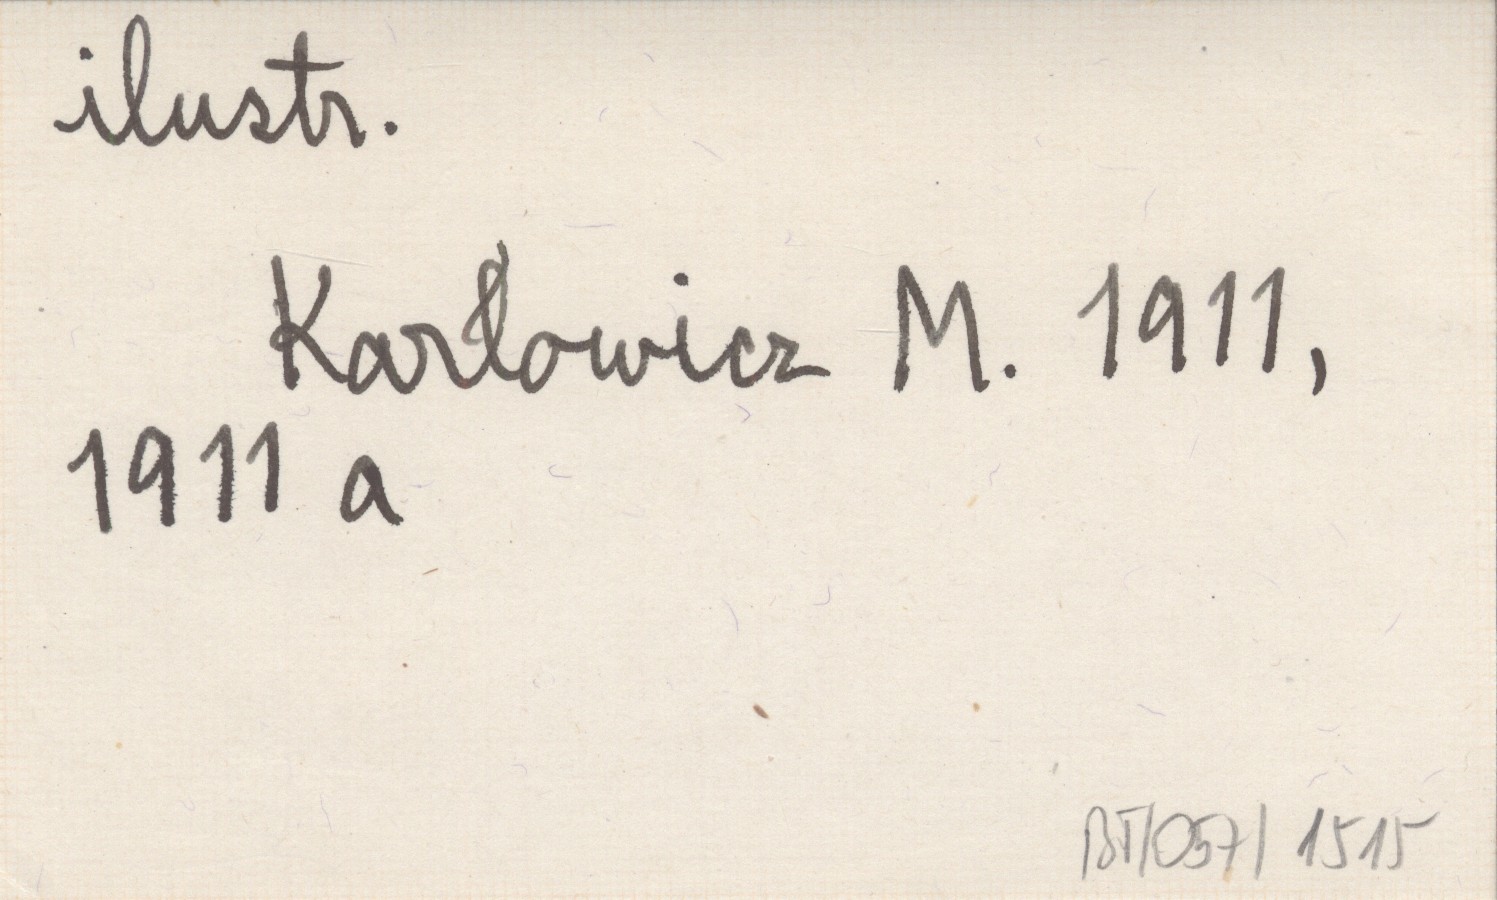 ilustr.
Karłowicz M. 1911,
1911 a
BT/057/1515